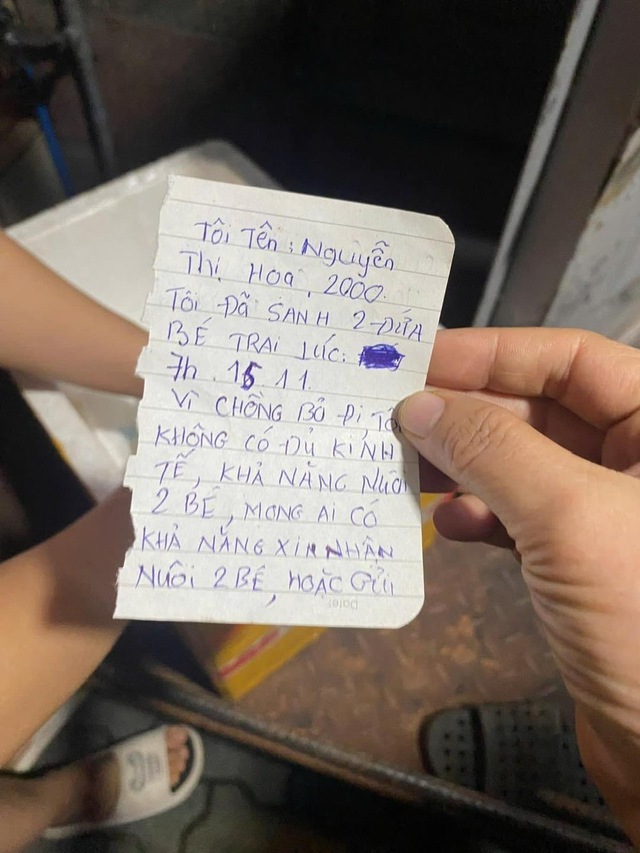 Tôi Tên: Nguyễn
Thị Hoa, 2000.
TÔI ĐÃ SANH 2 ĐỨA
BÉ TRAI LÚC:
7h. 15 11.
Vì CHỒNG BỎ ĐI TÔI
KHÔNG CÓ ĐỦ KINH
TẾ, KHẢ NĂNG NUÔI
2 BÉ, MONG AI CÓ
KHẢ NĂNG XIN NHÂN
NUÔI 2 BÉ, HOẶC GỬI
Date: